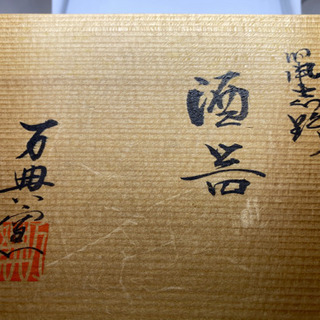 鼠志野
酒器
万典窯